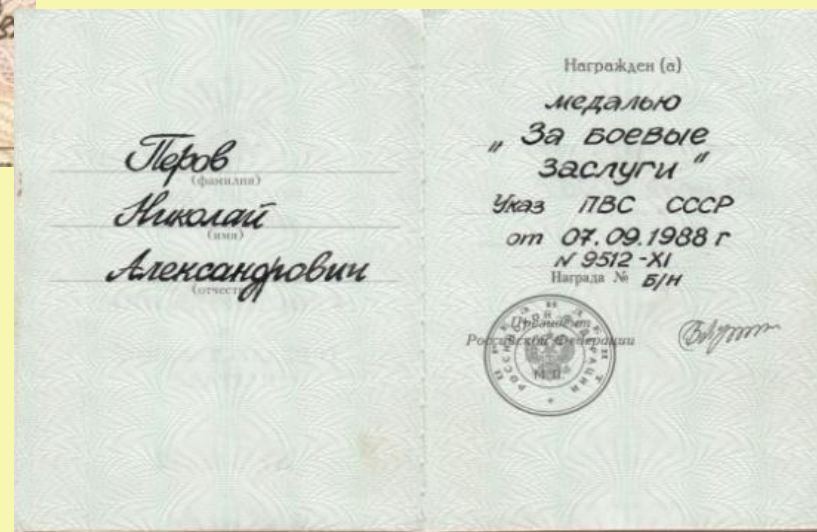 Перов
(фамилия)
Николай
(имя)
Александрович
(отчество)
Награжден (а)
медалью
„ За боевые
заслуги "
Указ ПВС СССР
от 07.09.1988 г
N 9512 -XI
Награда № Б/Н
Президент
Российской Федерации
М.П.
ПРЕЗИДЕНТ
РОССИЙСКОЙ ФЕДЕРАЦИИ